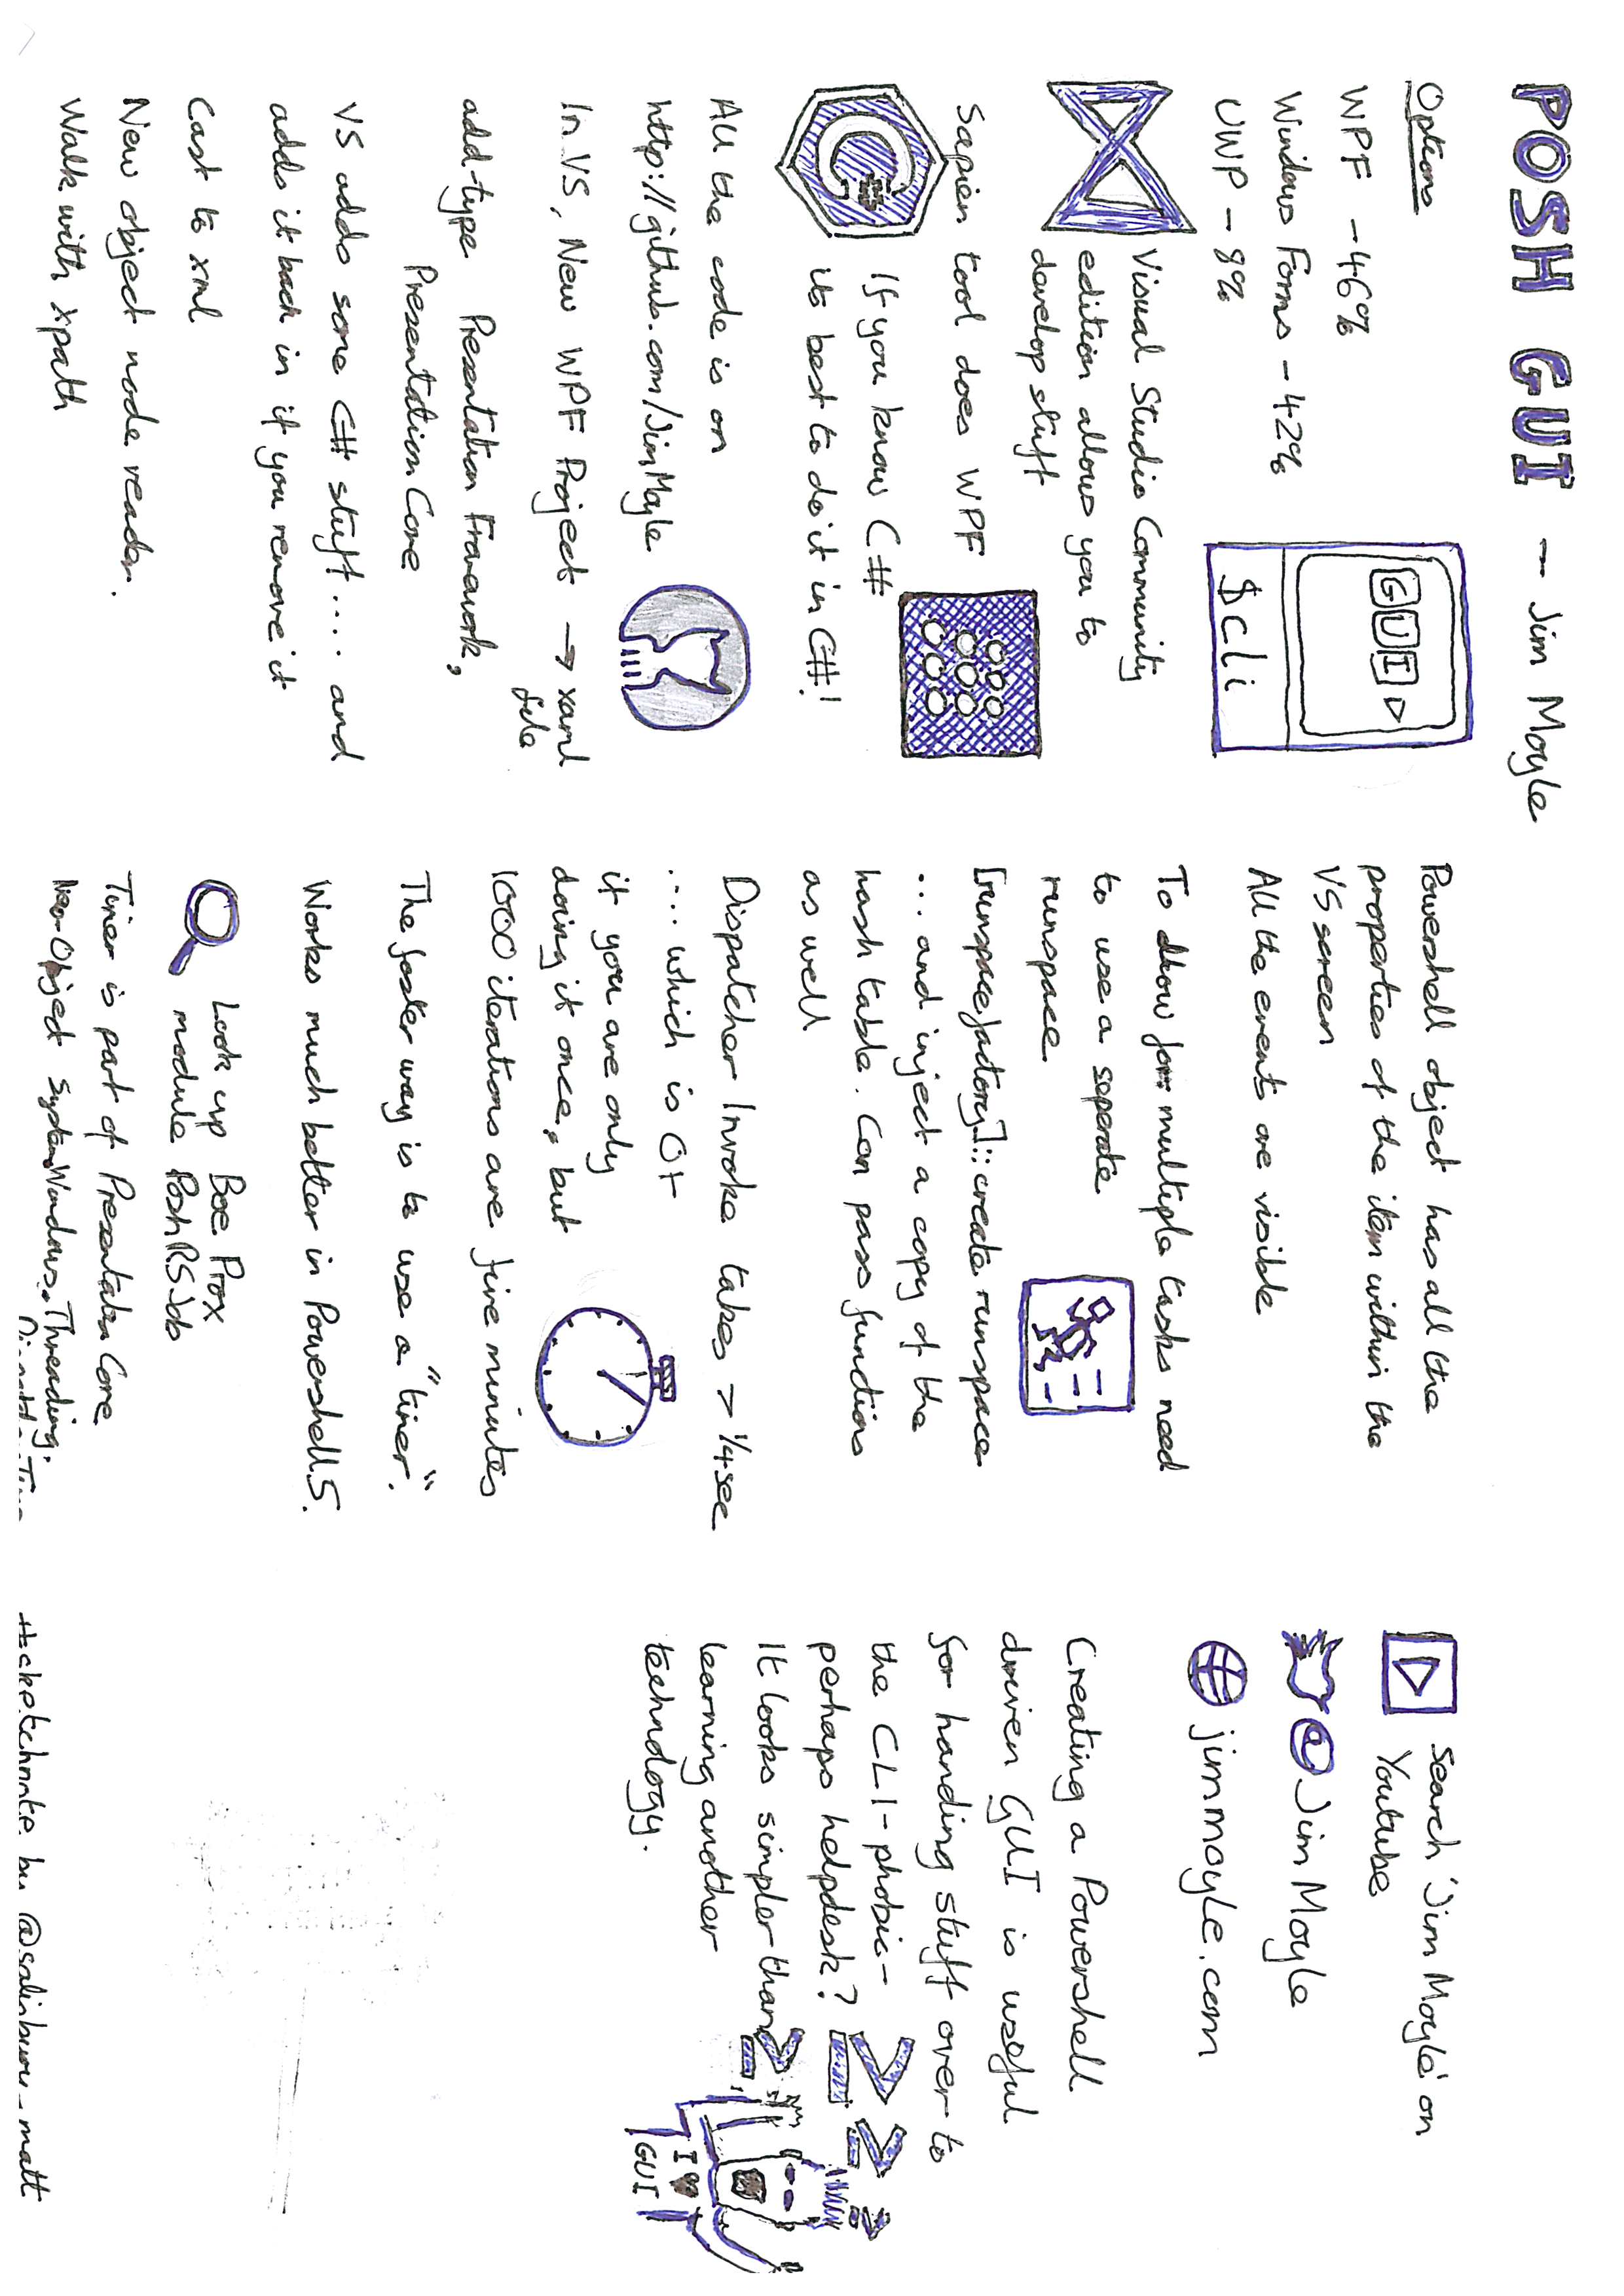 POSH GUI - Jim Moyle
Options
WPF - 46%
Windows Forms - 42%
UWP - 8%
GUI
$cli
Visual Studio Community
edition allows you to
develop stuff
Sapien tool does WPF
C#
If you know C#
its best to do it in C#!
All the code is on
http://github.com/JimMoyle
In VS, New WPF Project → xaml
file
add-type Presentation Framework,
Presentation Core
VS adds some C# stuff.... and
adds it back in if you remove it
Cast to xml
New object node reader.
Walk with xpath
Powershell object has all the
properties of the item within the
VS screen
All the events are visible
To allow for multiple tasks need
to use a seperate
runspace
[runspacefactory]:: create runspace
... and inject a copy of the
hash table. Can pass functions
as well
Dispatcher Invoke takes > 1/4 sec
.... which is OK
if you are only
doing it once, but
1000 iterations are five minutes
The faster way is to use a "timer".
Works much better in Powershell 5.
Look up Boe Prox
module PoshRSJob
Timer is part of Presentation Core
New-Object System.Windows.Threading.
DispatcherTimer
Search 'Jim Moyle' on
Youtube
@JimMoyle
jimmoyle.com
Creating a Powershell
driven GUI is useful
for handing stuff over to
the CLI-phobic-
perhaps helpdesk?
It looks simpler than
learning another
technology.
I ♥
GUI
#sketchnote by @salisbury_matt